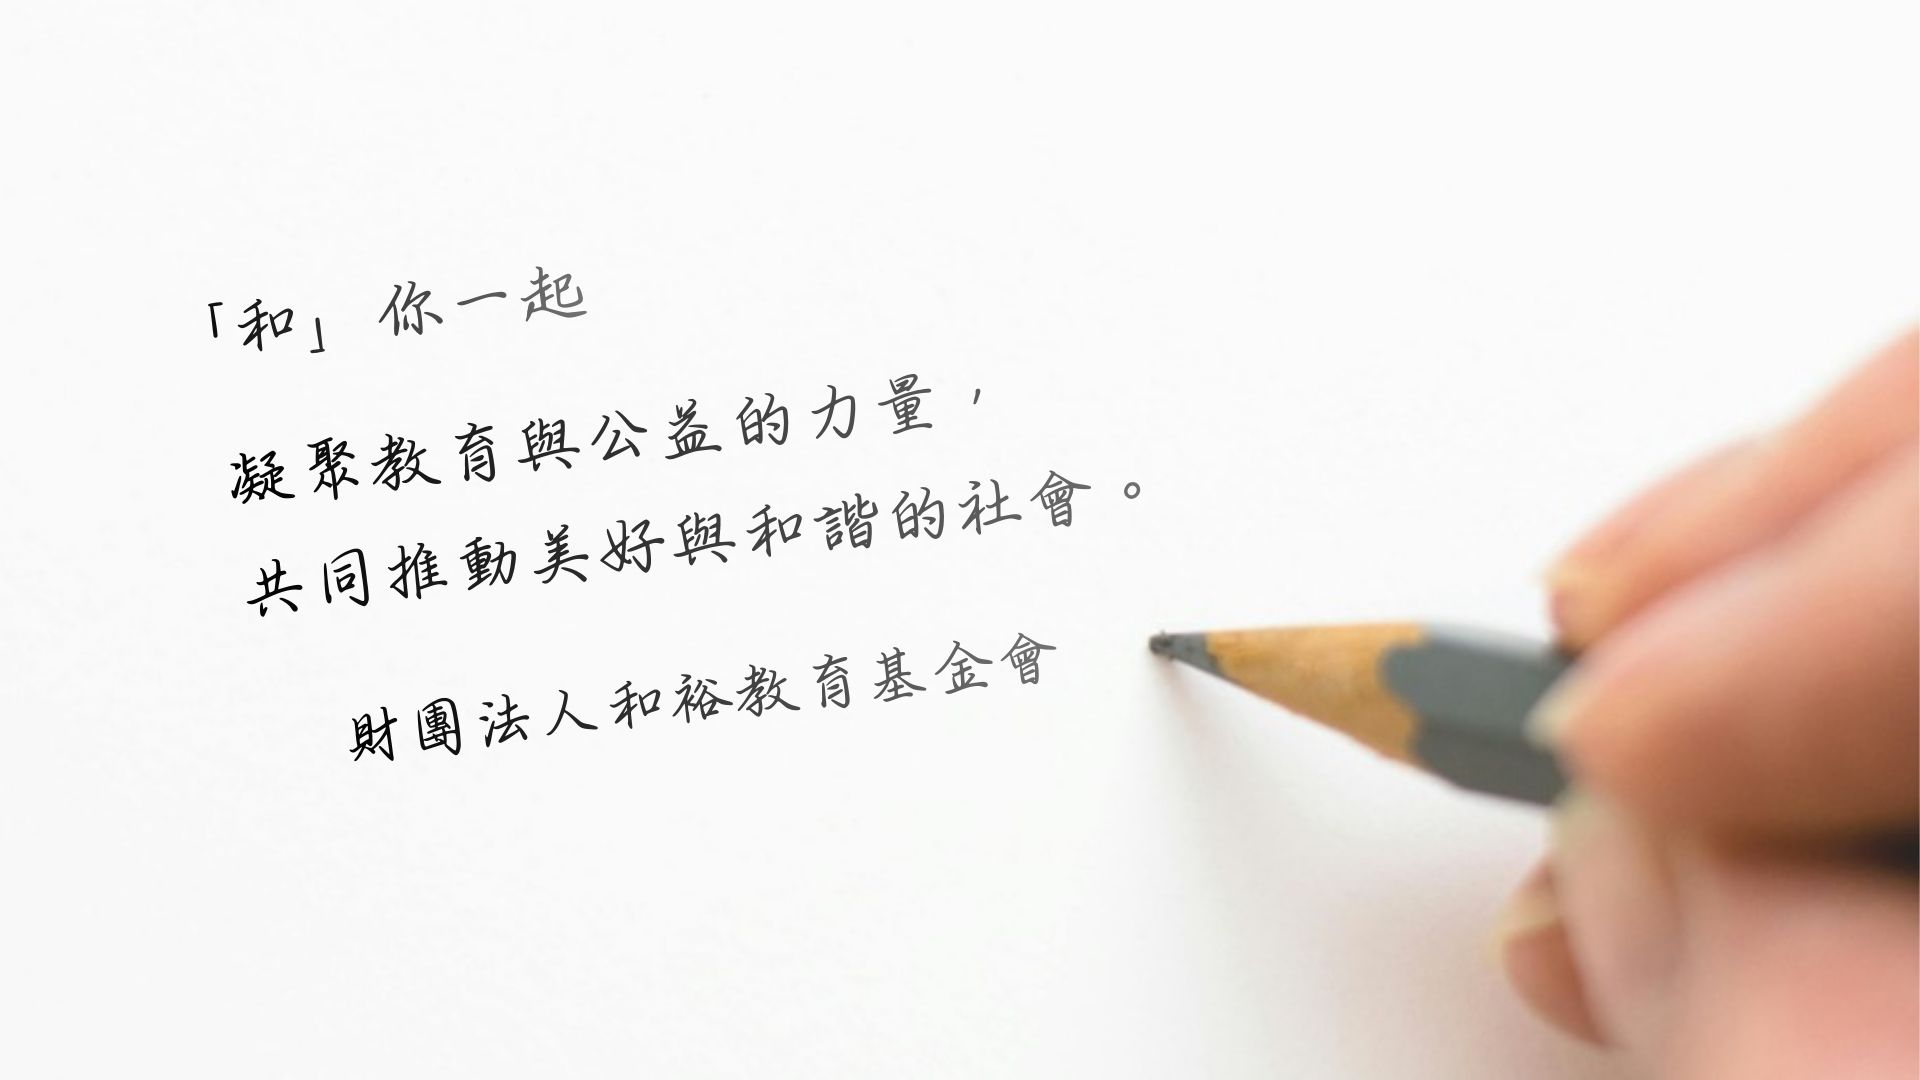 「和」你一起
凝聚教育與公益的力量，
共同推動美好與和諧的社會。
財團法人和裕教育基金會